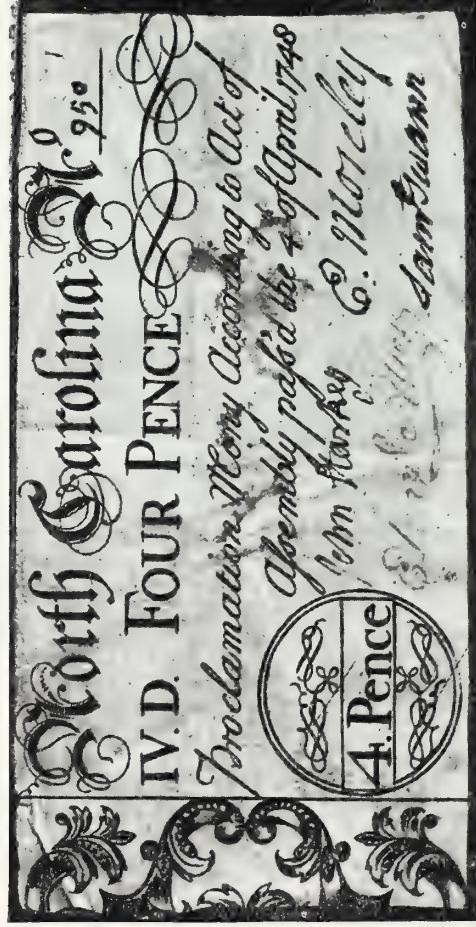 North Carolina No 950
IV. D. FOUR PENCE
Proclamation Mony According to Act of
Assembly pass'd the 4. of April 1748
John Starkey E. Moseley
Sam Swann
4. Pence